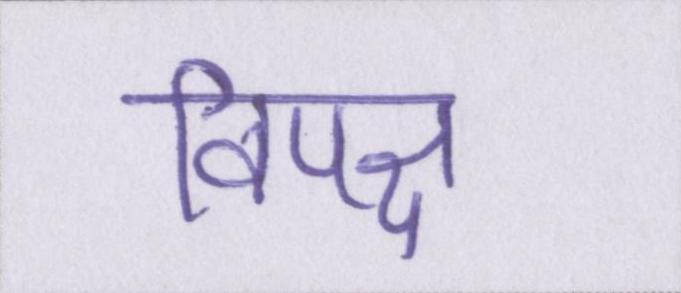 विपक्ष